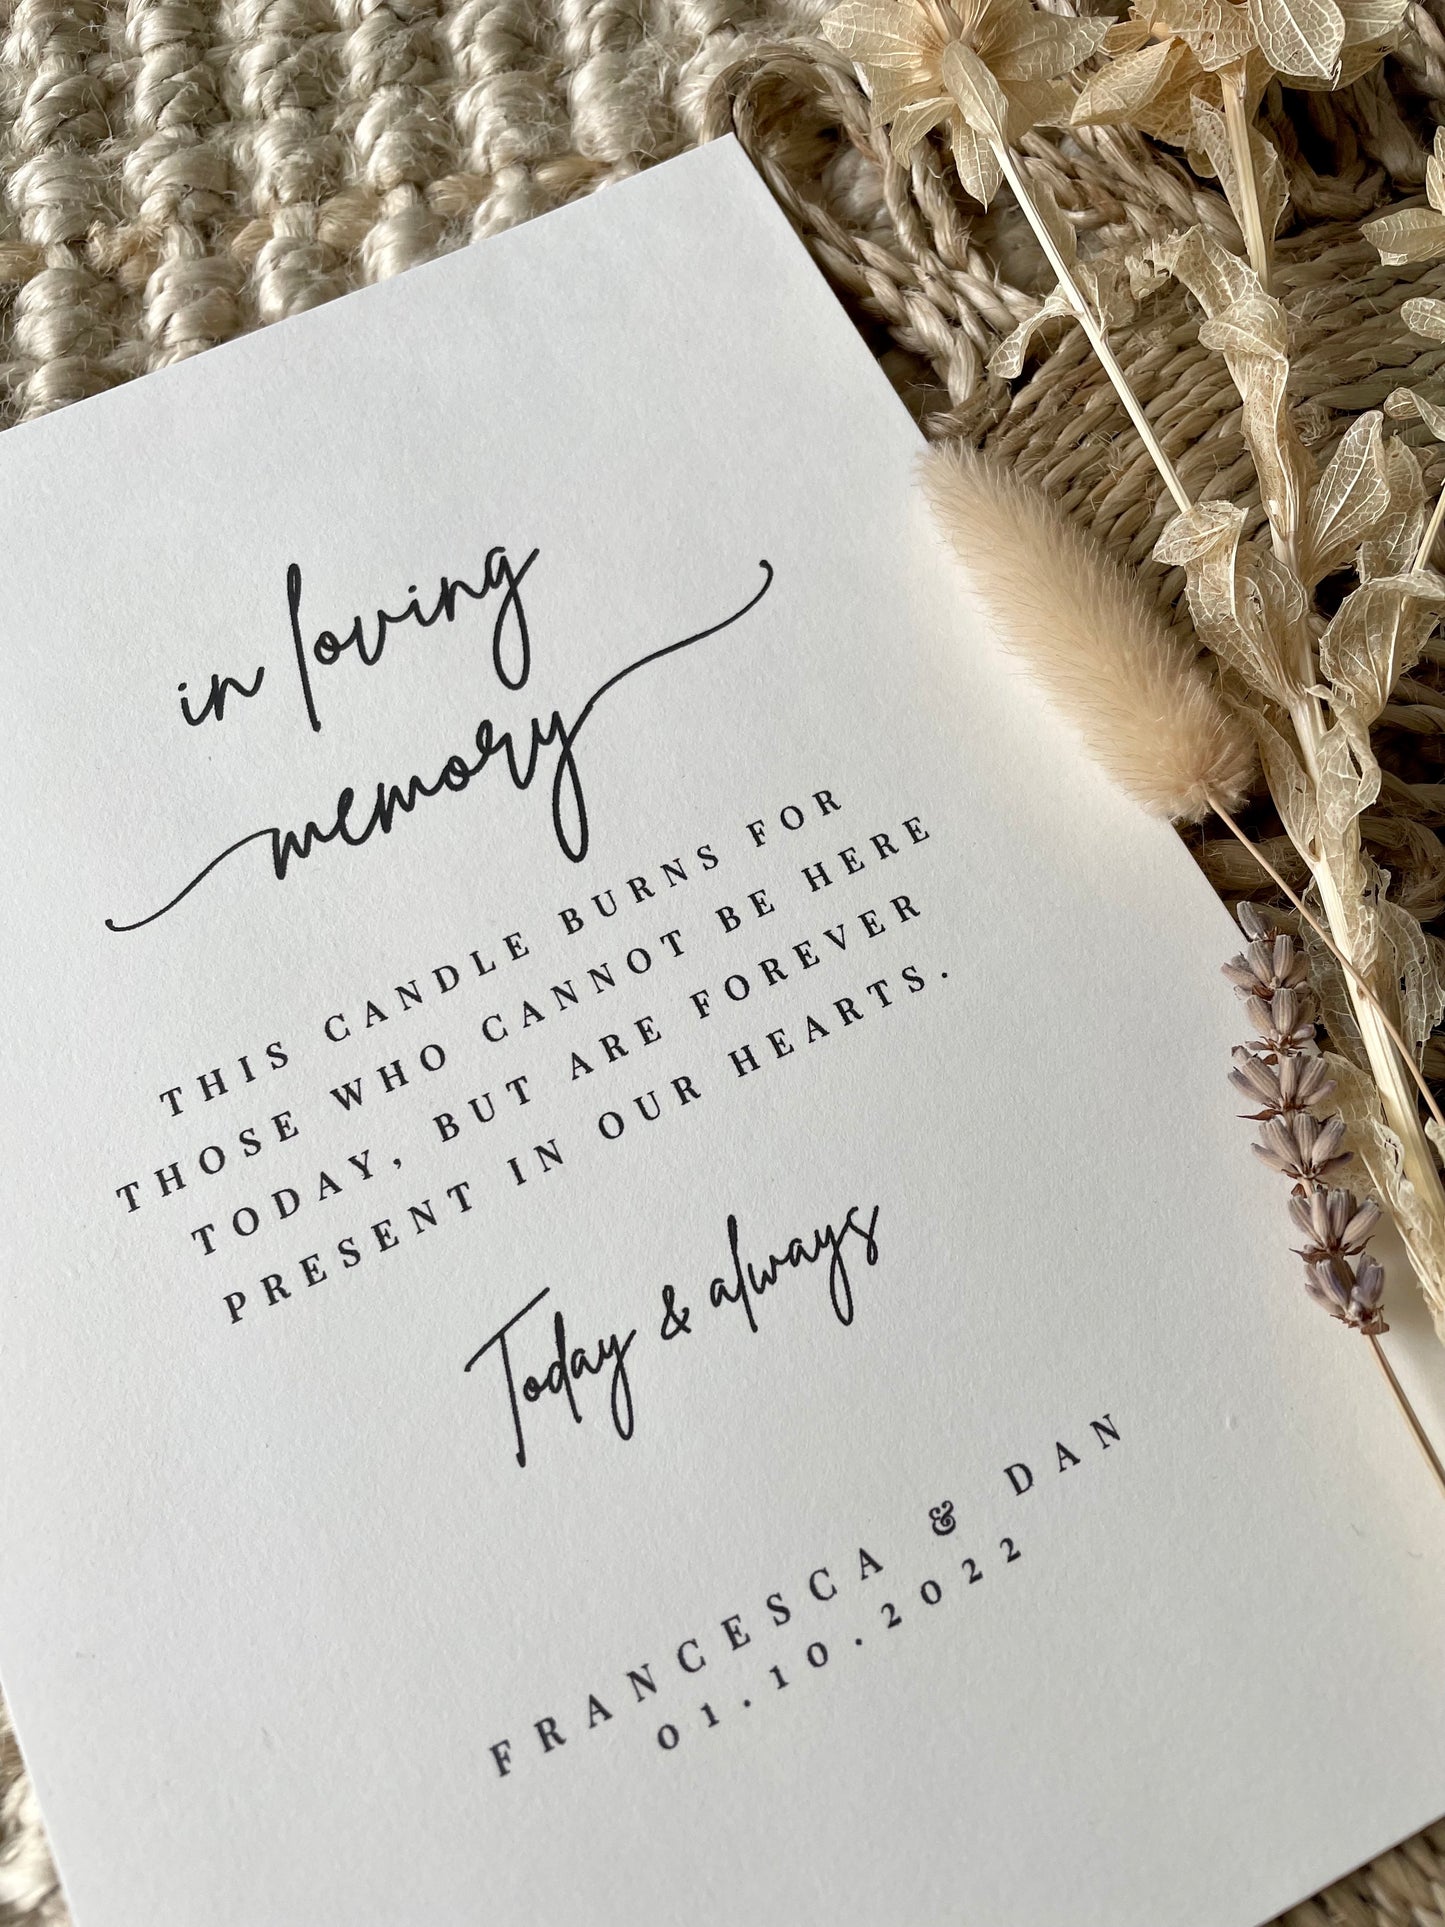 in loving
memory
THIS CANDLE BURNS FOR
THOSE WHO CANNOT BE HERE
TODAY, BUT ARE FOREVER
PRESENT IN OUR HEARTS.
Today & always
FRANCESCA & DAN
01.10.2022